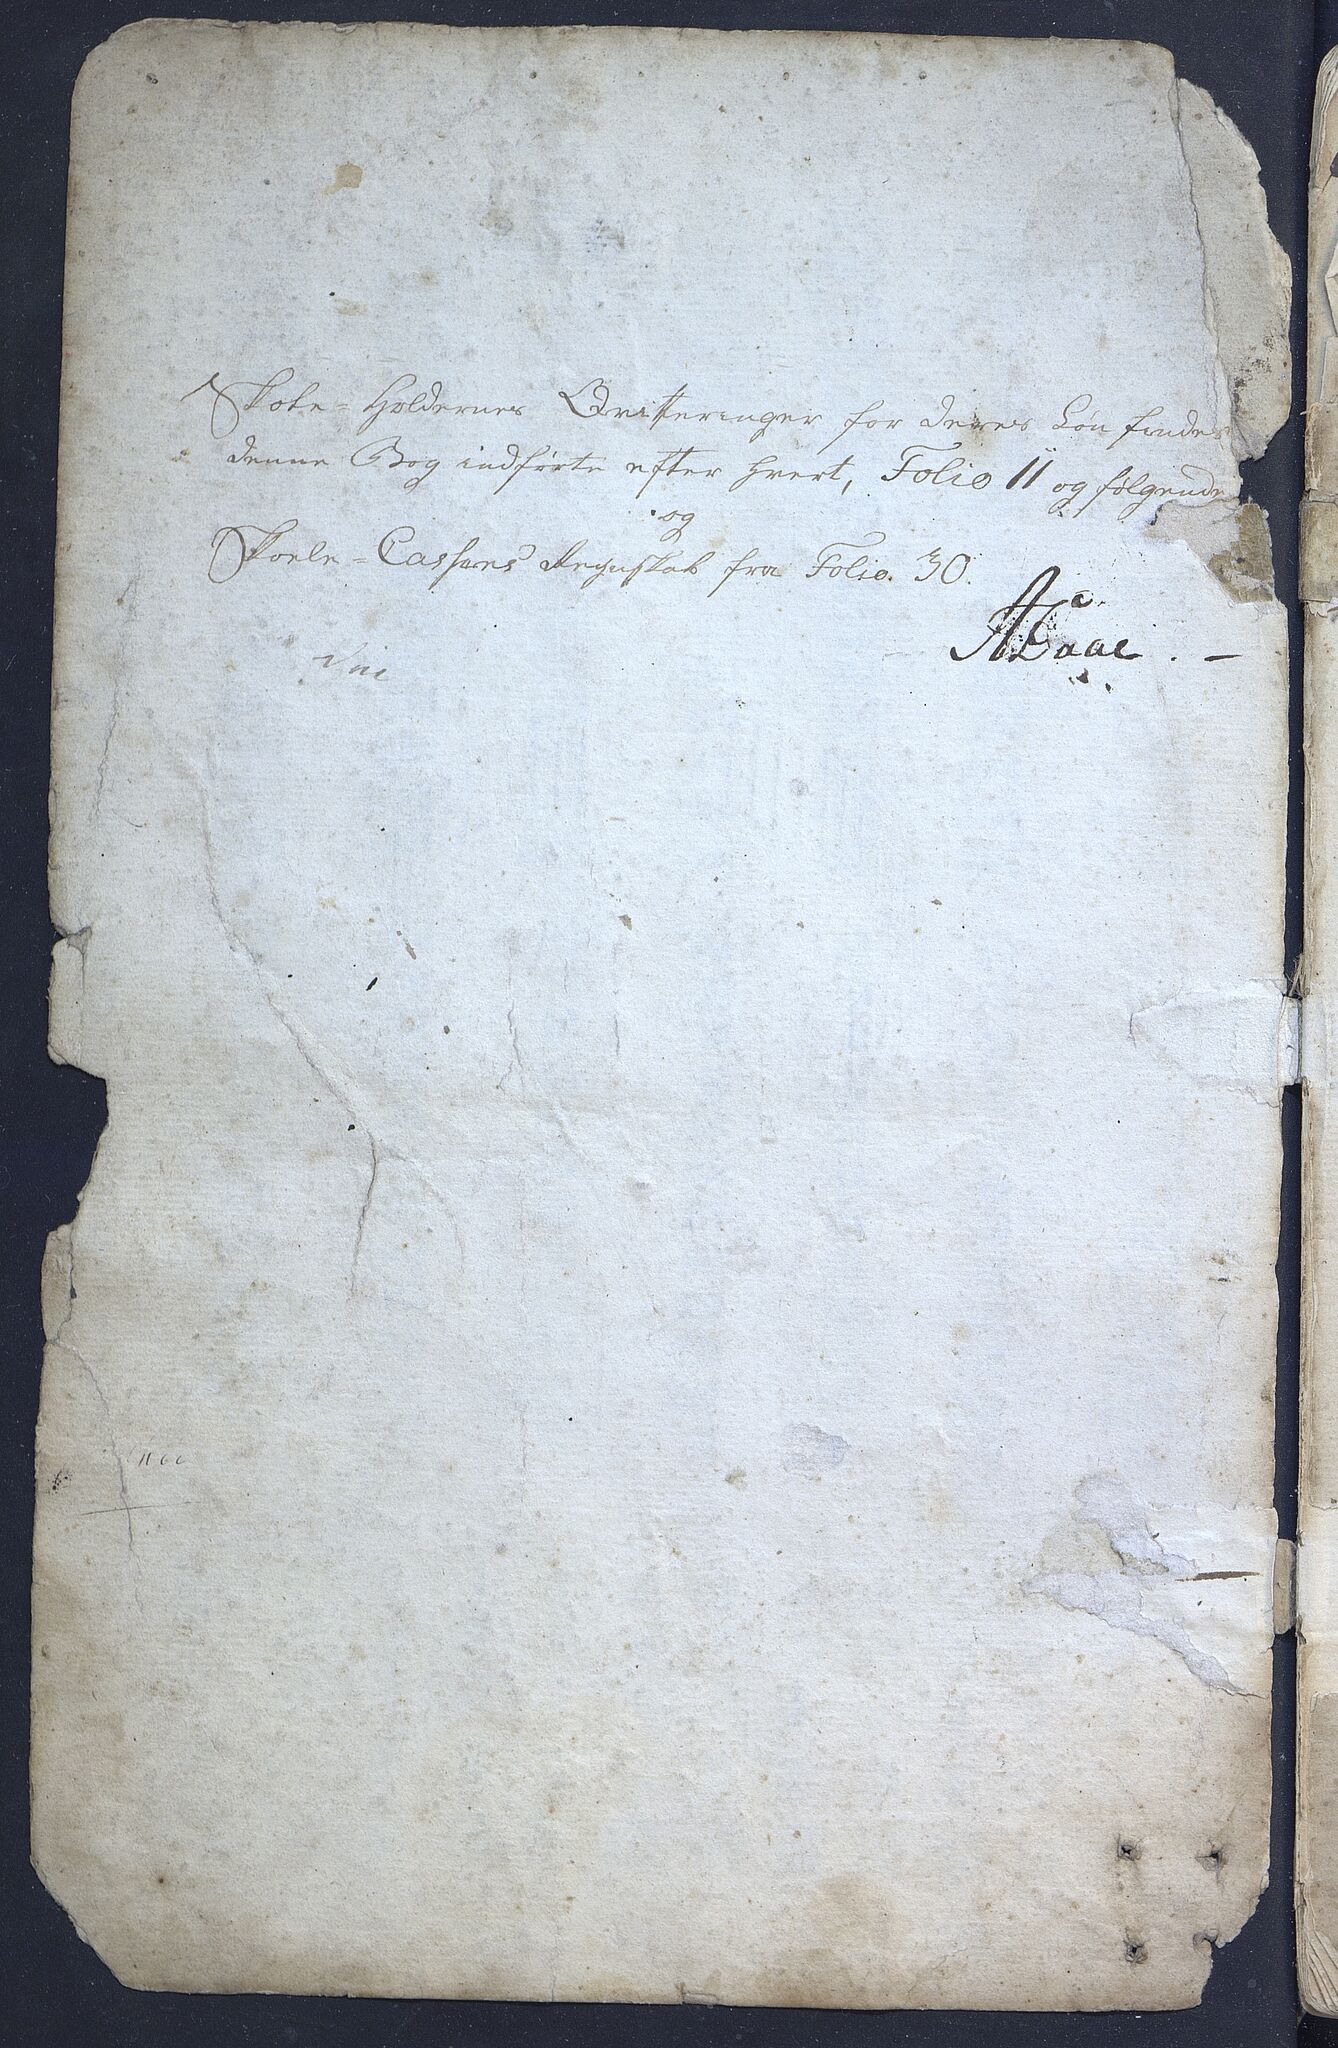 Skole-Holdernes Qvitteringer for deres Løn findes
i denne Bog indførte efter hvert, Folio 11 og følgende
og
Skoele-Cassens Regnskab fra Folio. 30.